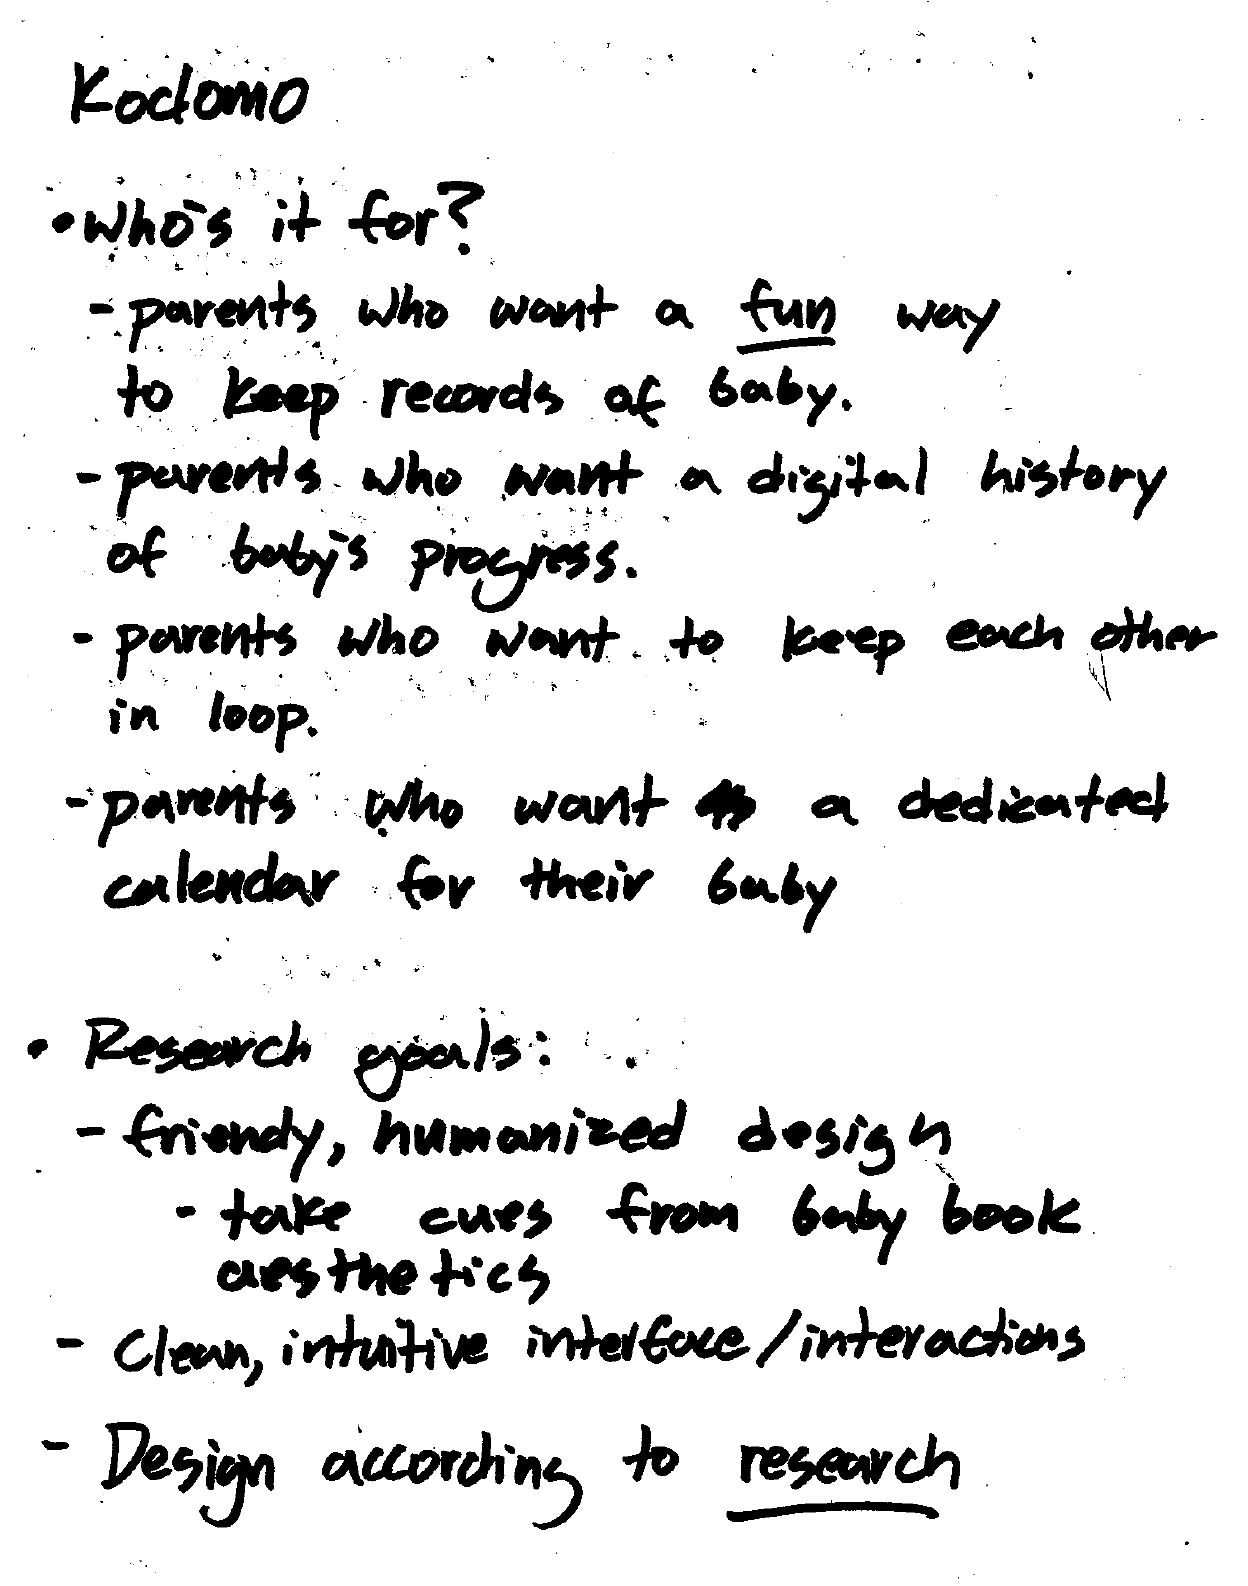 Kodomo
• Who's it for?
- parents who want a fun way
to keep records of baby.
- parents who want a digital history
of baby's progress.
- parents who want to keep each other
in loop.
- parents who want a dedicated
calendar for their baby
• Research goals:
- friendy, humanized design
- take cues from baby book
aesthetics
- Clean, intuitive interface/interactions
- Design according to research